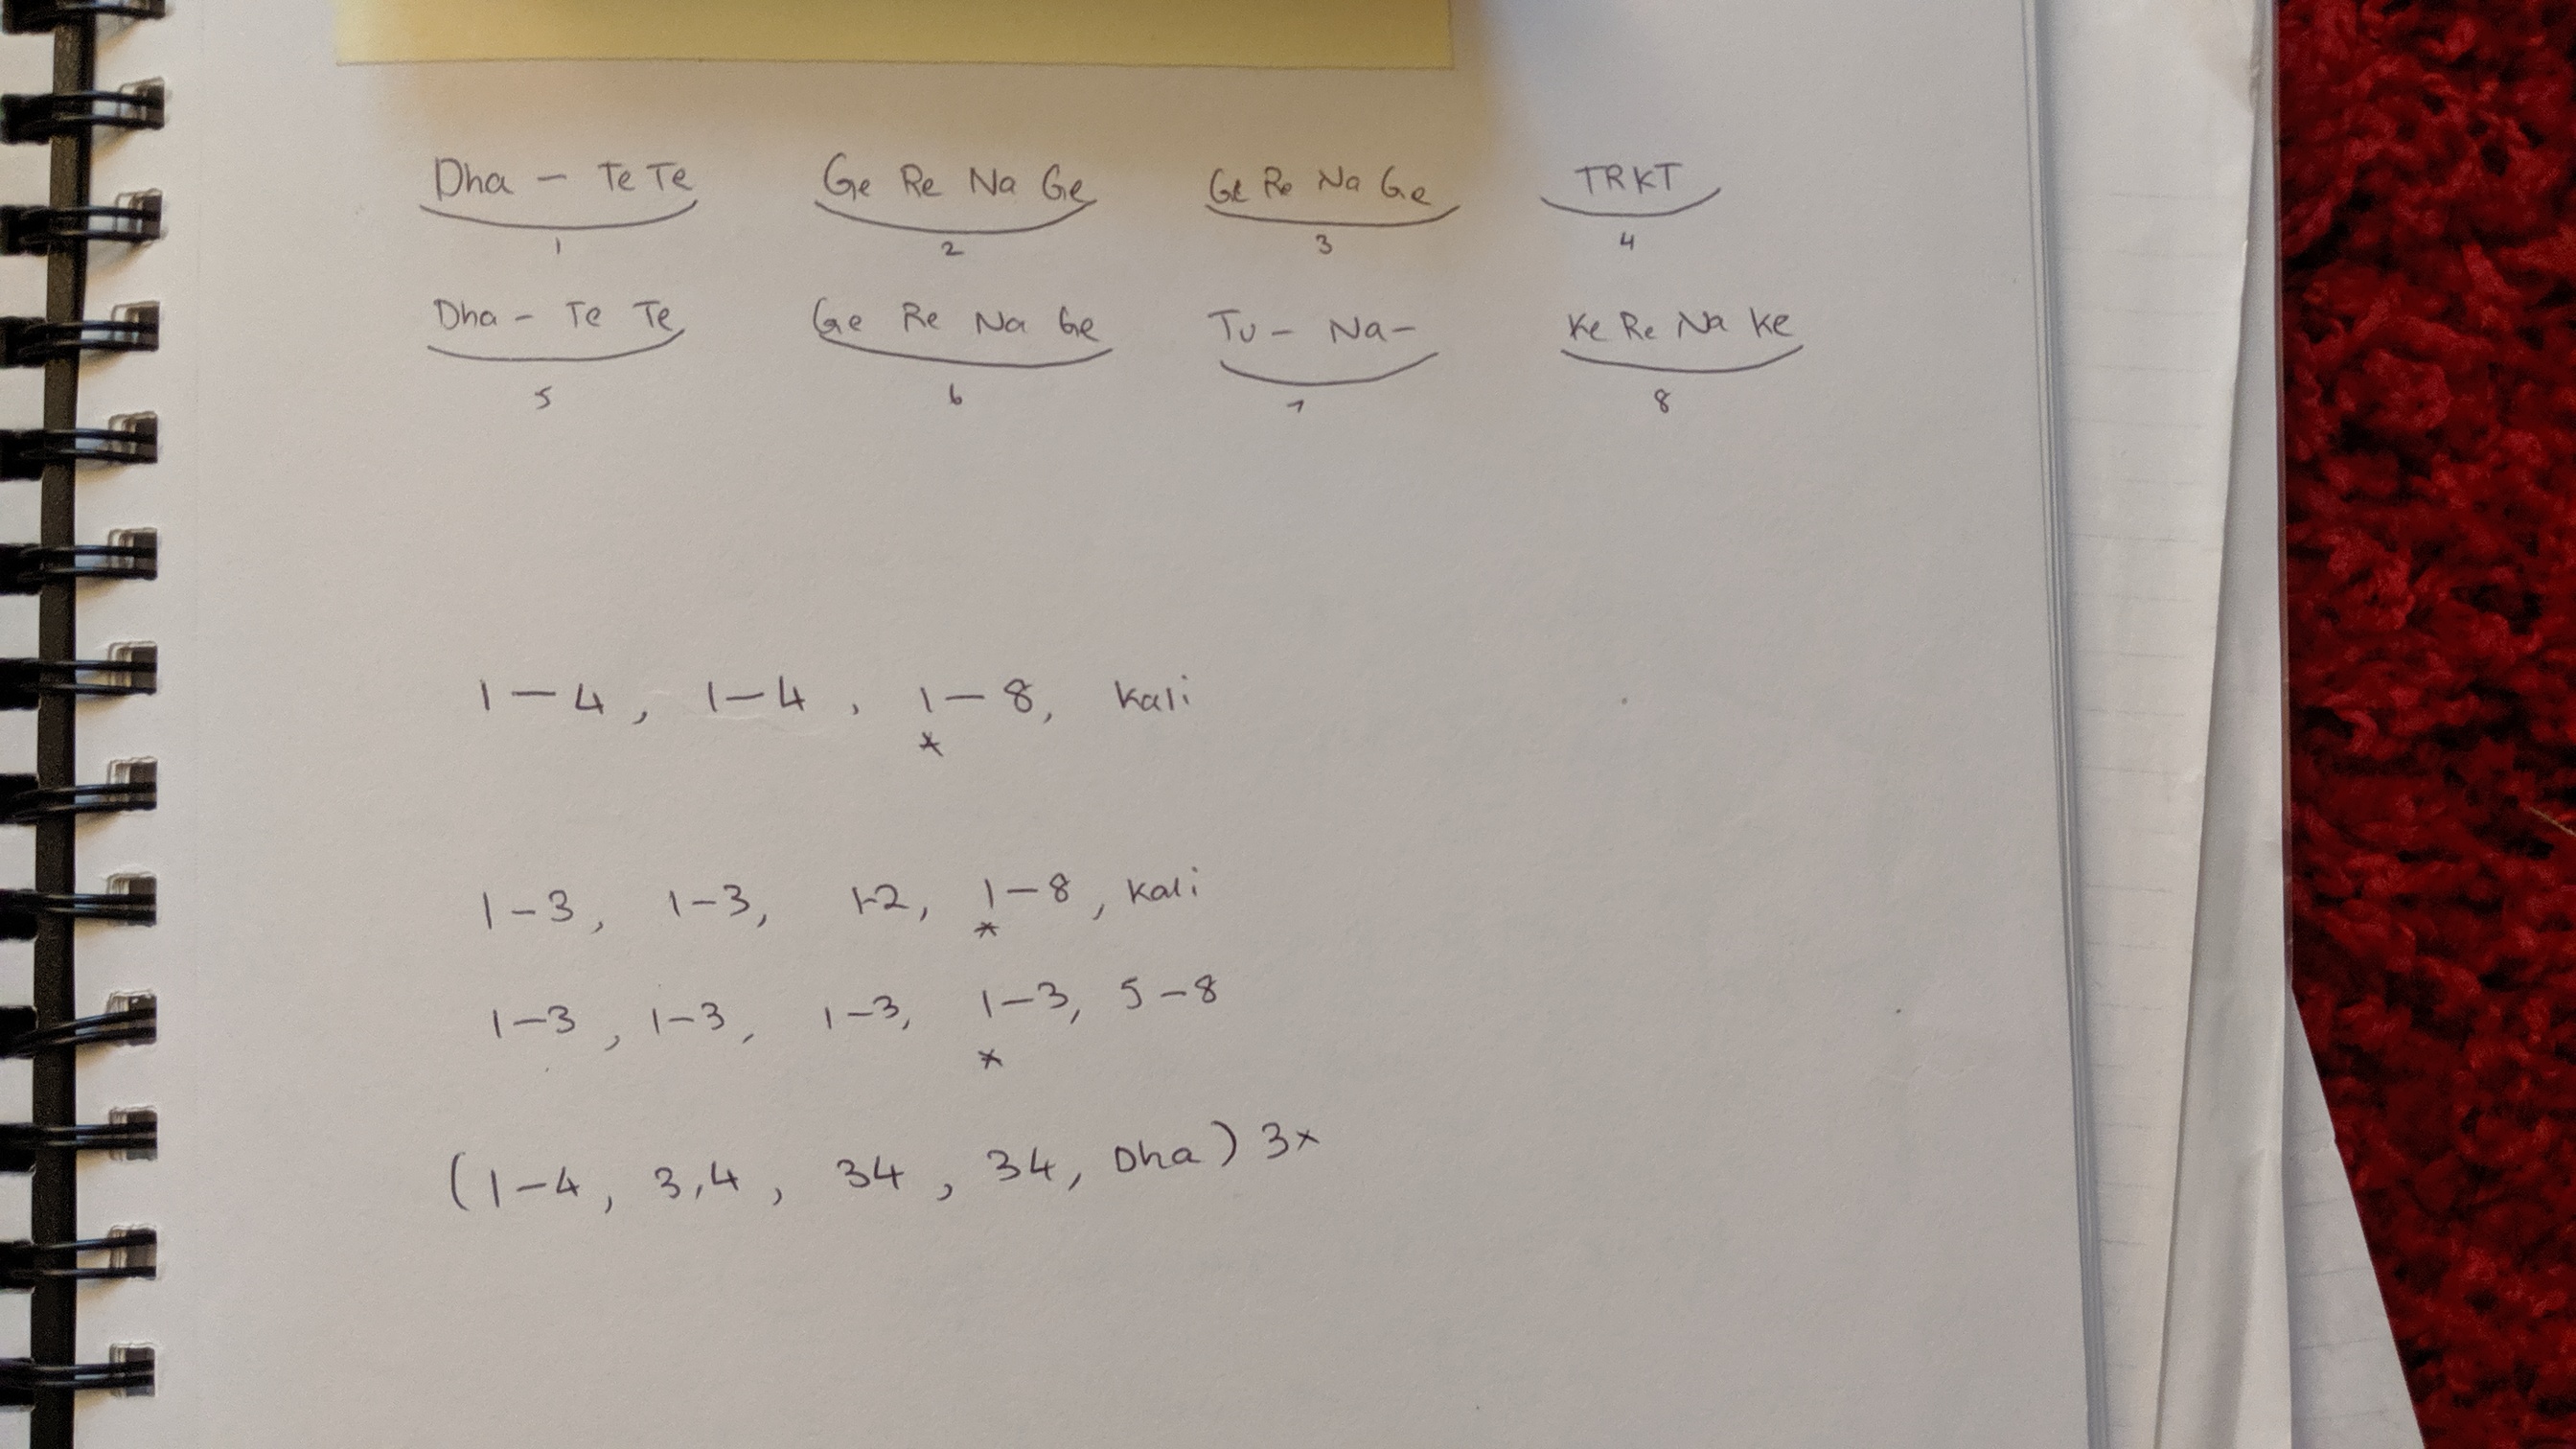 Dha - Te Te Ge Re Na Ge Ge Re Na Ge TRKT
1 2 3 4
Dha - Te Te Ge Re Na Ge Tu - Na - Ke Re Na Ke
5 6 7 8
1 - 4 , 1 - 4 , 1 - 8 , kali
*
1 - 3 , 1 - 3 , 1-2 , 1 - 8 , kali
*
1 - 3 , 1 - 3 , 1 - 3 , 1 - 3 , 5 - 8
*
( 1 - 4 , 3,4 , 34 , 34 , Dha ) 3x